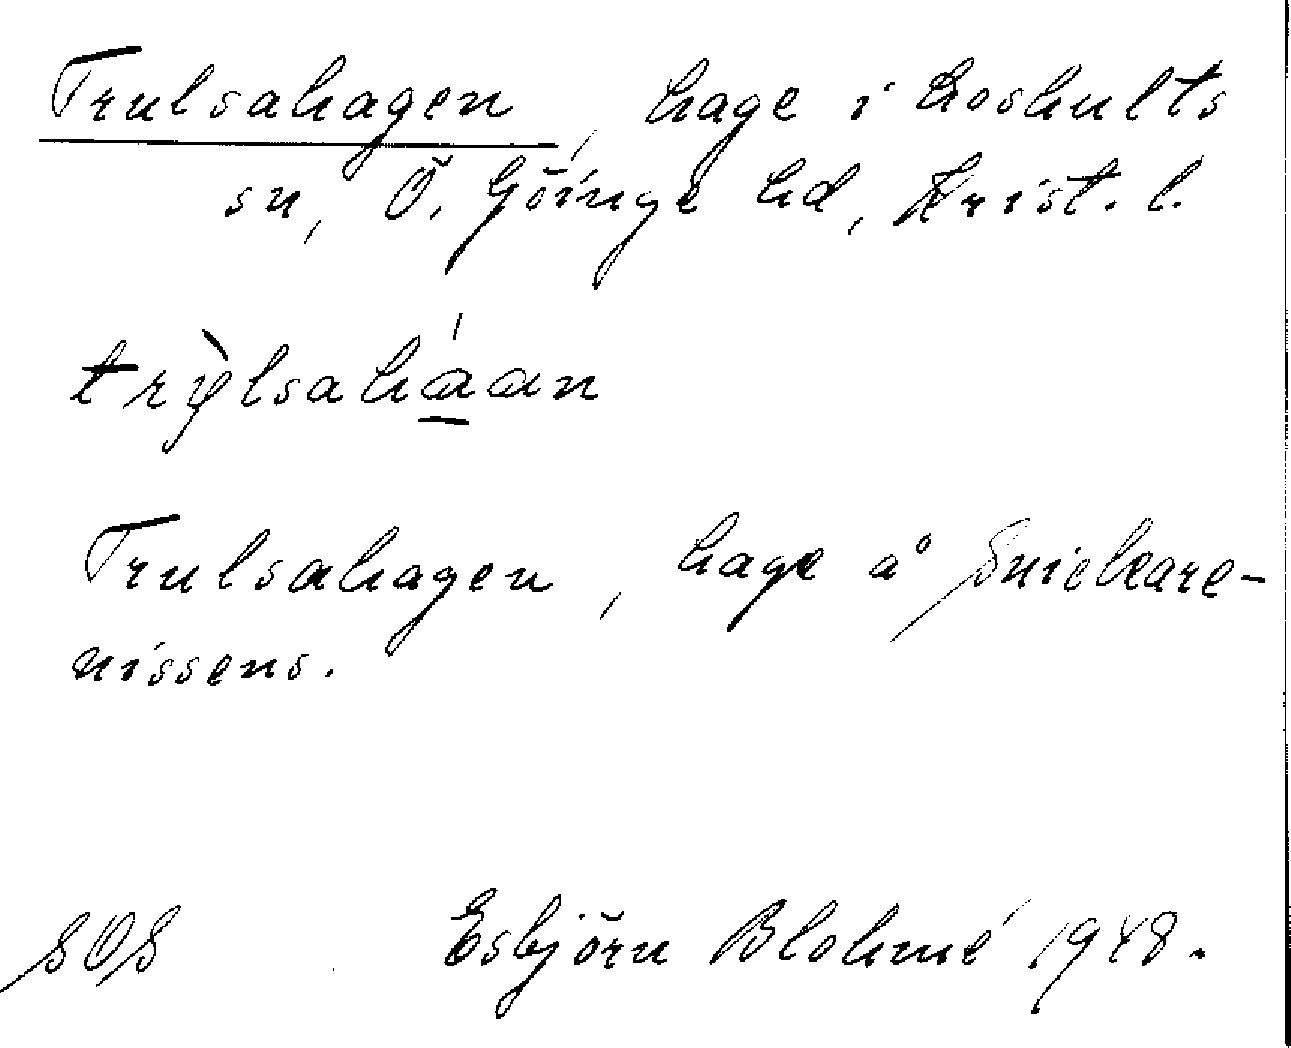 Trulsahagen, hage i Loshults
sn, Ö. Göinge hd, Krist. l.
trỳlsaháan
Trulsahagen, hage å Snickare-
nissens.
SOS Esbjörn Blohmé 1948.